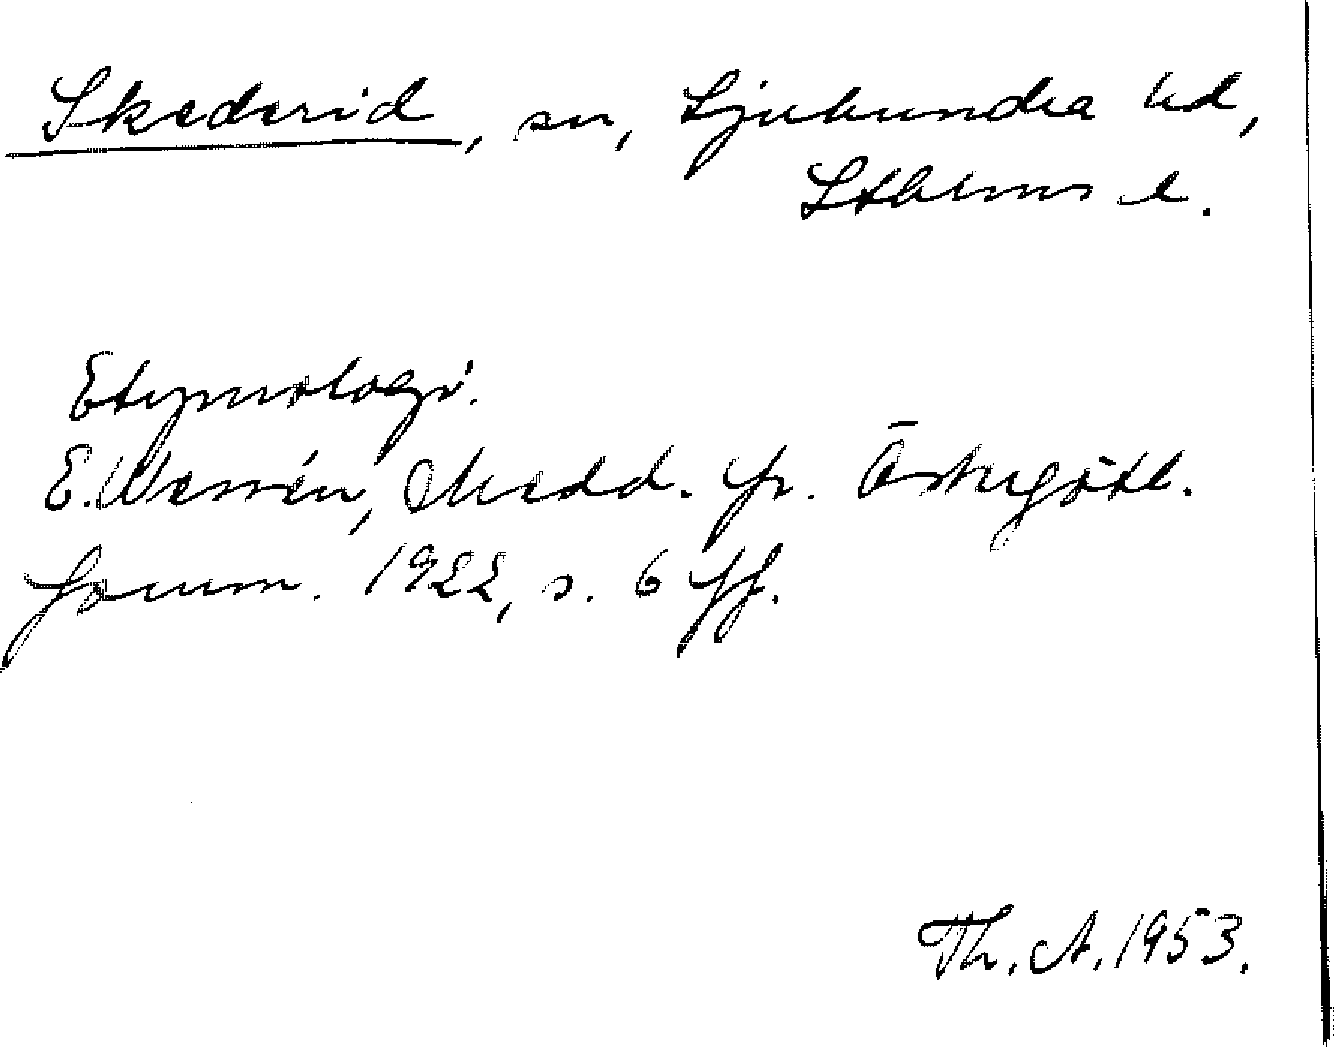 Skederid, sn, Sjuhundra hd,
Sthlms l.
Etymologi.
E. Wessén, Medd. fr. Östergötl.
fornm. 1922, s. 6 ff.
Th. A. 1953.